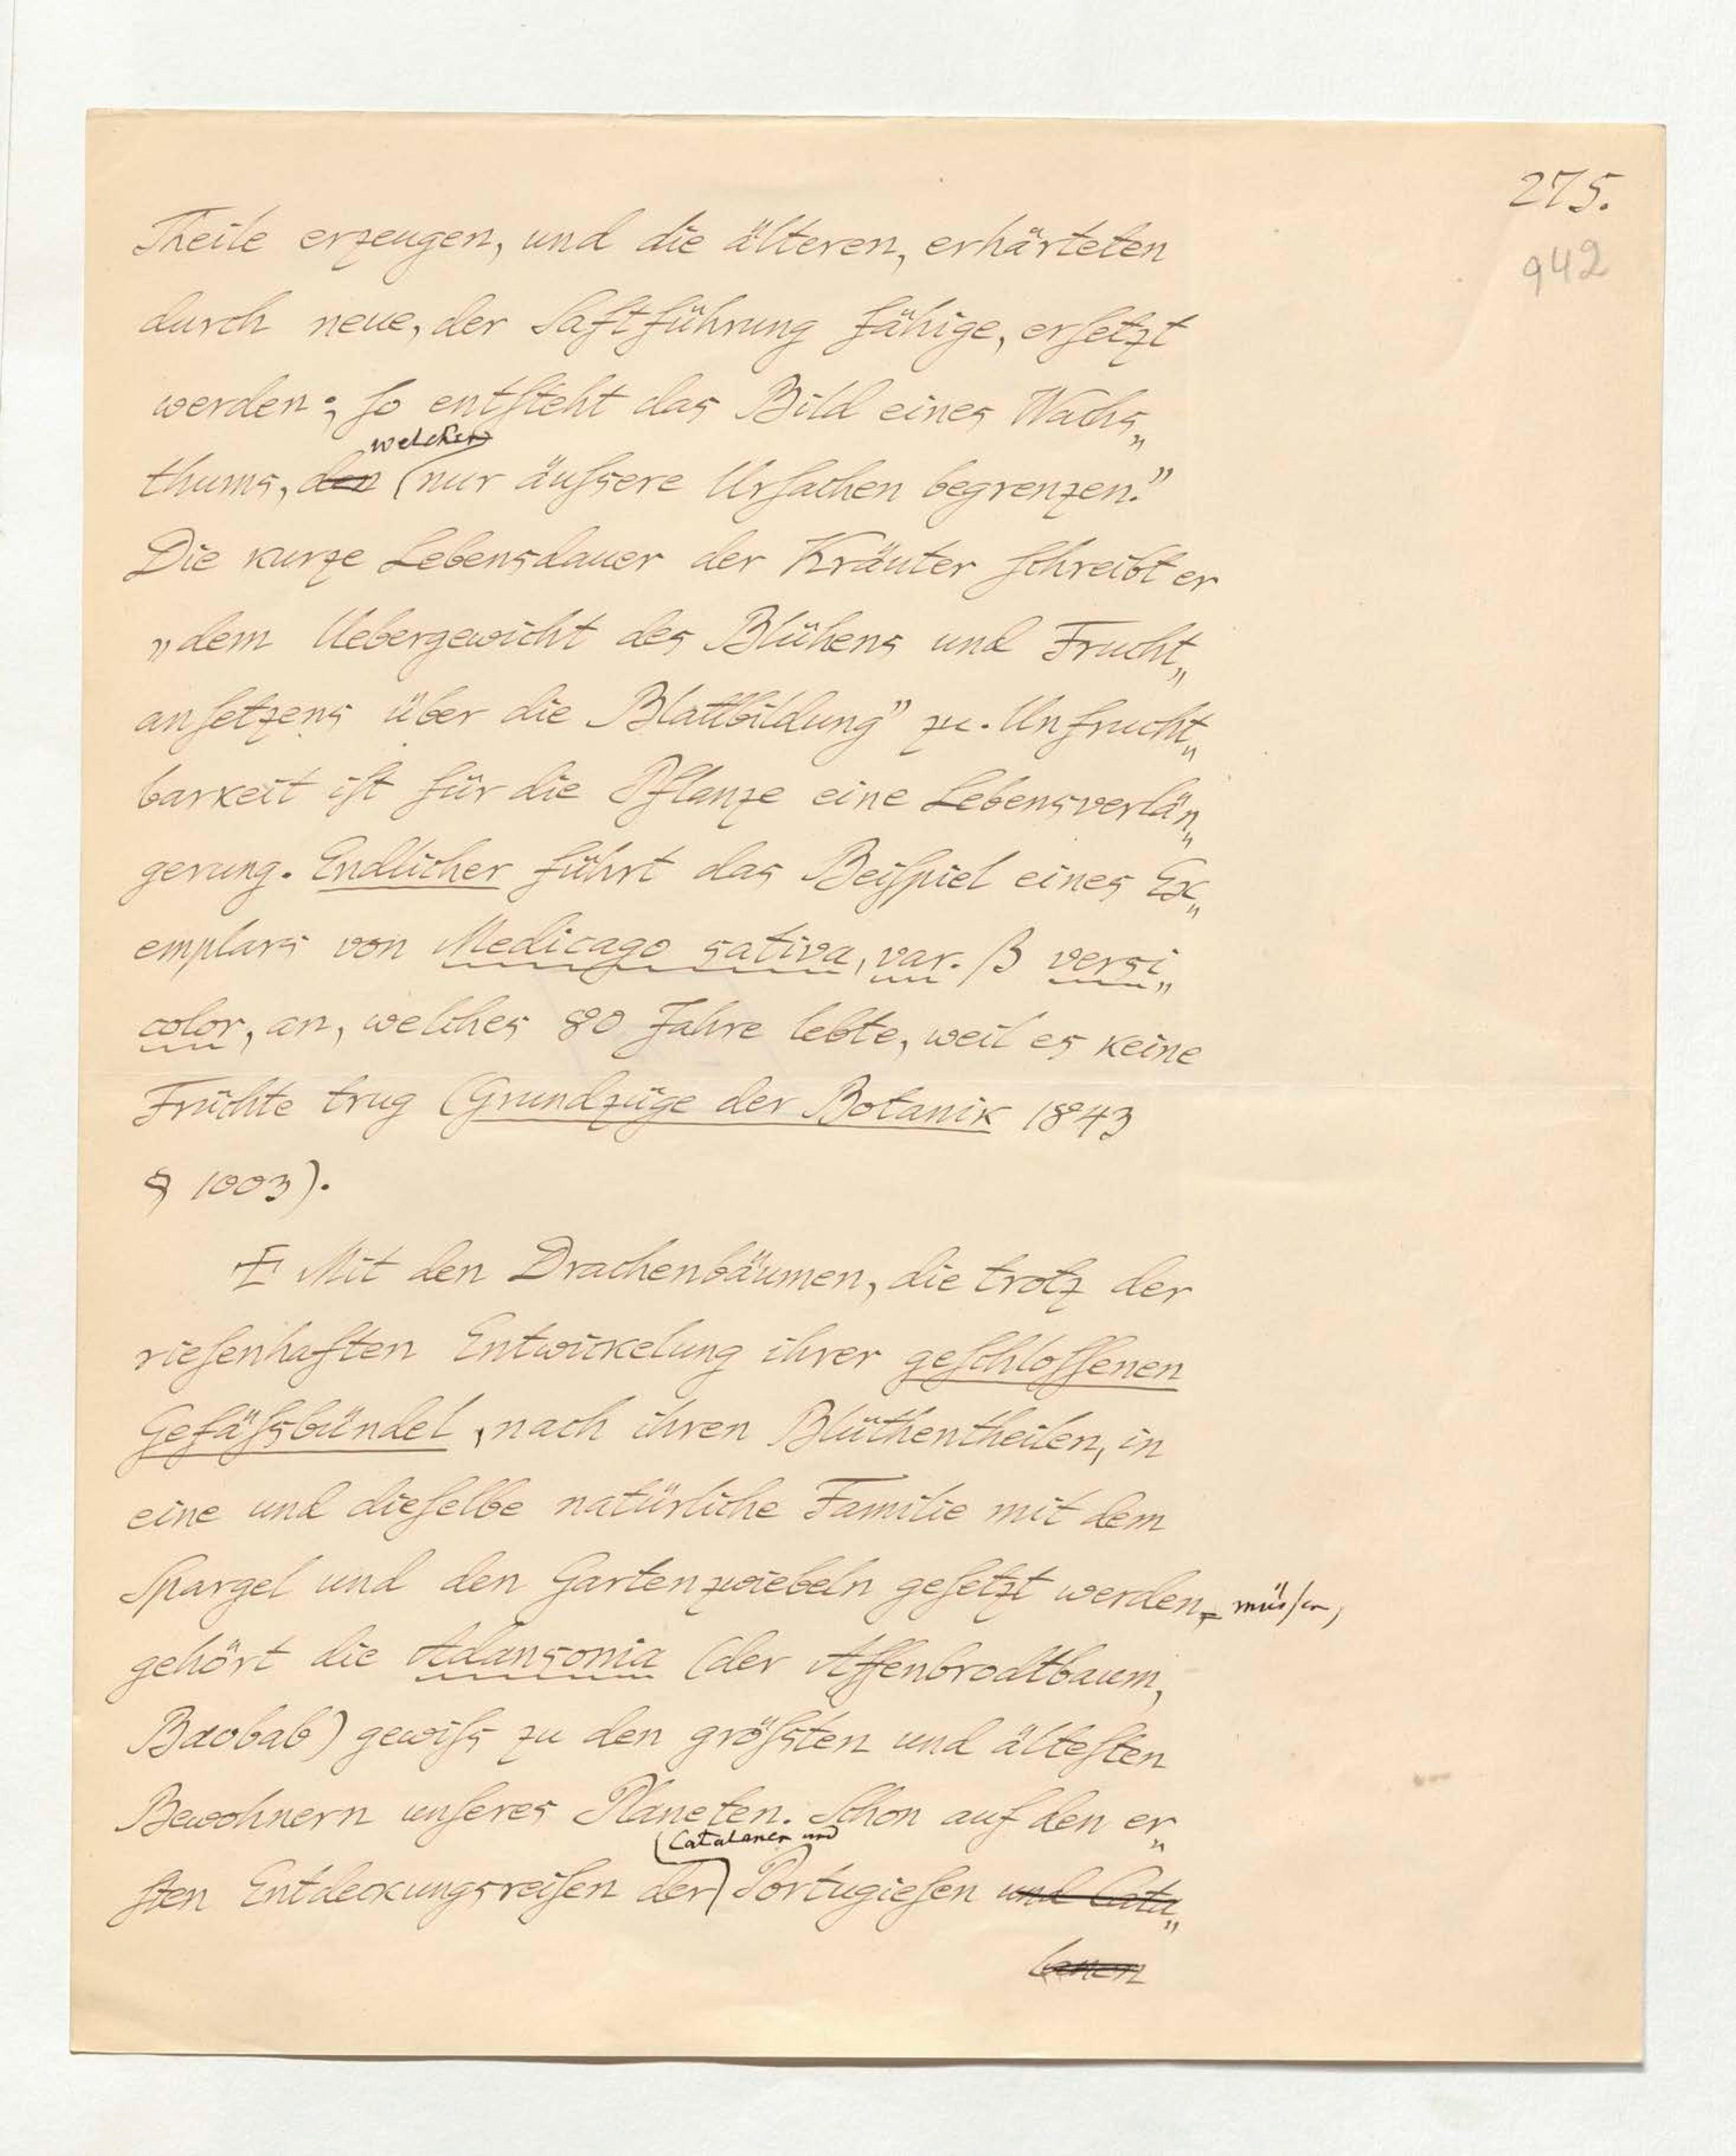 275.
942
Theile erzeugen, und die älteren, erhärteten
durch neue, der Saftführung fähige, ersetzt
werden; so entsteht das Bild eines Wachs„
welches
thums, den nur äußsere Ursachen begrenzen.”
Die kurze Lebensdauer der Kräuter schreibt er
„dem Uebergewicht des Blühens und Frucht„
ansetzens über die Blattbildung” zu. Unfrucht„
barkeit ist für die Pflanze eine Lebensverlän„
gerung. Endlicher führt das Beispiel eines Ex„
emplars von Medicago sativa, var. β versi„
color, an, welches 80 Jahre lebte, weil es keine
Früchte trug (Grundzüge der Botanik 1843
§ 1003).
Mit den Drachenbäumen, die trotz der
riesenhaften Entwickelung ihrer geschlossenen
Gefäßsbündel, nach ihren Blüthentheilen, in
eine und dieselbe natürliche Familie mit dem
Spargel und den Gartenzwiebeln gesetzt werden müssen,
gehört die Adansonia (der Affenbrodtbaum,
Baobab) gewißs zu den größsten und ältesten
Bewohnern unseres Planeten. Schon auf den er„
Catalanen und
sten Entdeckungsreisen der Portugiesen und Cata„
lanen